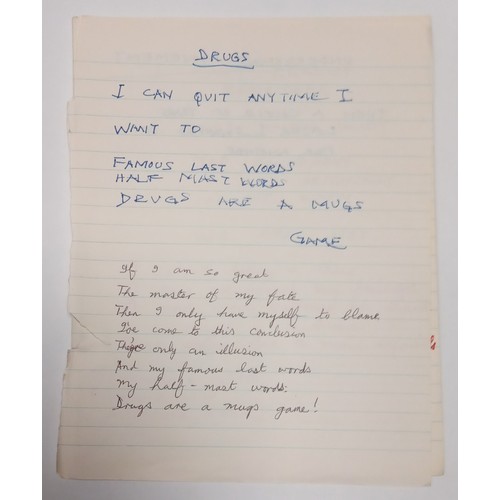 DRUGS
I CAN QUIT ANYTIME I
WANT TO
FAMOUS LAST WORDS
HALF MAST WORDS
DRUGS ARE A MUGS
GAME
If I am so great
The master of my fate
Then I only have myself to blame
I've come to this conclusion
They're only an illusion
And my famous last words
My half-mast words:
Drugs are a mugs game!